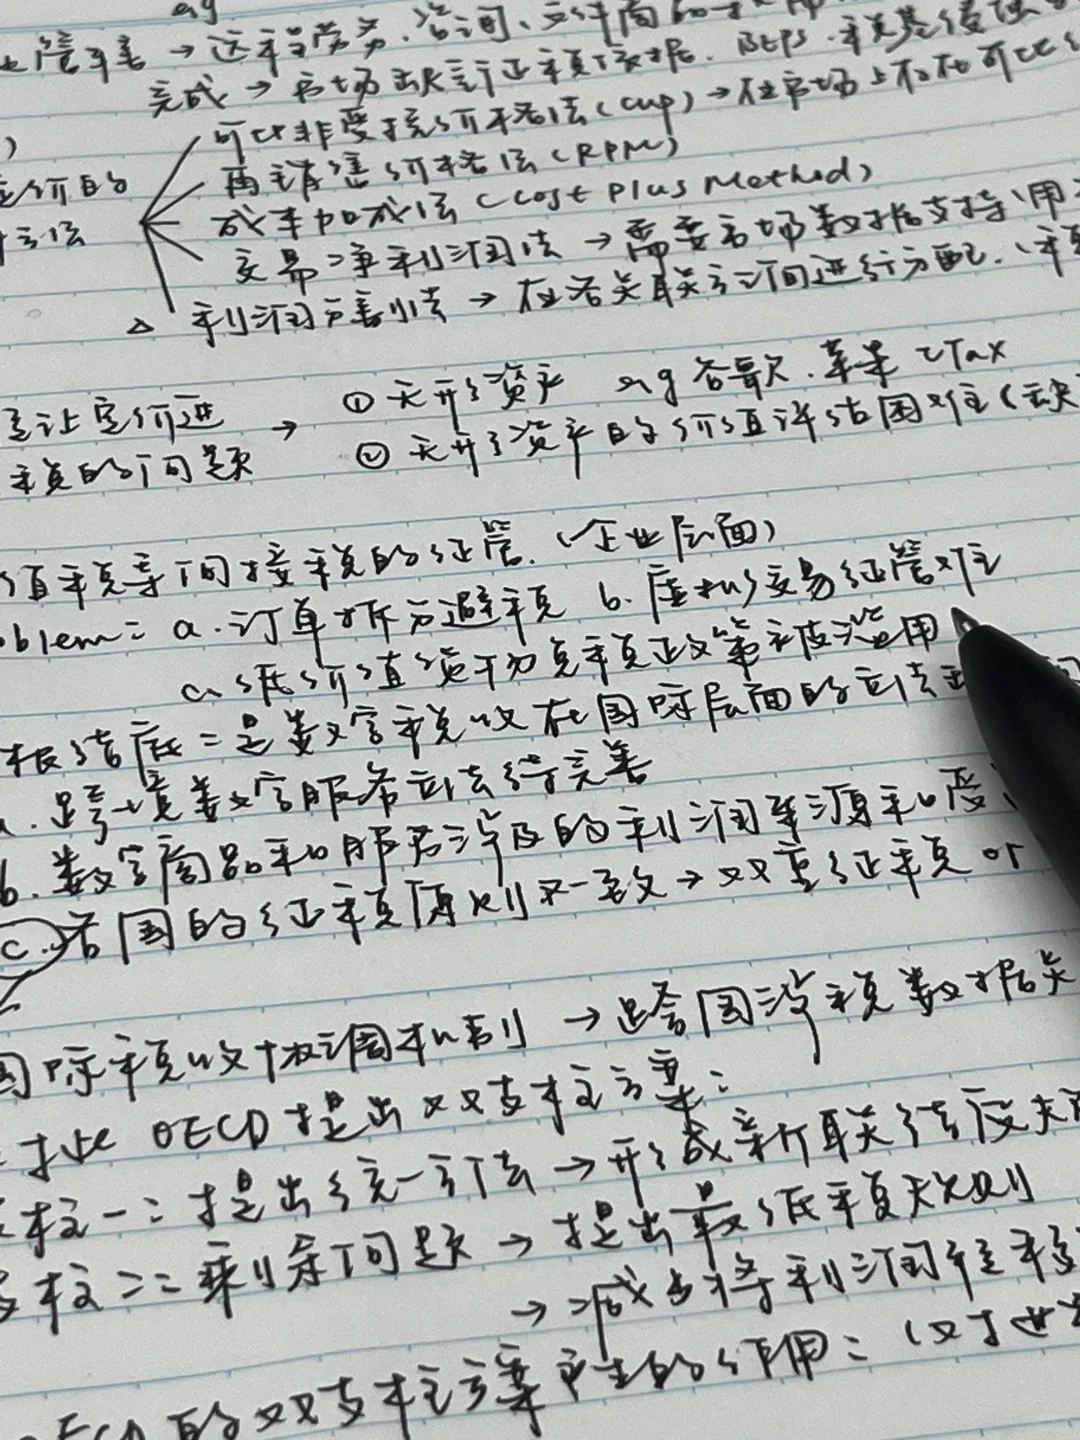 eg
管乎差 → 这种劳务.咨询、文件
完成 → 市场缺乏计价税依据. BEPS. 税基侵蚀
可比非受控价格法(cup) → 在市场上存在可比
定价的 再销售价格法(RPM)
方法 成本加成法(Cost Plus Method)
交易净利润法 → 需要市场数据支持、用
△ 利润分割法 → 在各关联方之间进行分配.
转让定价进 → ① 无形资产 eg 谷歌.苹果 Tax
税的问题 ② 无形资产的价值评估困难(缺
值税等间接税的征管.(企业层面)
oblem: a.订单拆分避税 b.虚拟交易征管难
c.低价值货物免税政策被滥用
根结底:是数字税收在国际层面的立法
a.跨境数字服务立法待完善
b.数字商品和服务涉及的利润来源和度
c.各国的征税原则不一致 → 双重征税 or
国际税收协调机制 → 跨国涉税数据
于此 OECD提出双支柱方案:
支柱一:提出统一方法 → 形成新联结度
支柱二:剩余问题 → 提出最低税规则
→ 减少将利润转移
OECD的双支柱方案产生的作用:(对